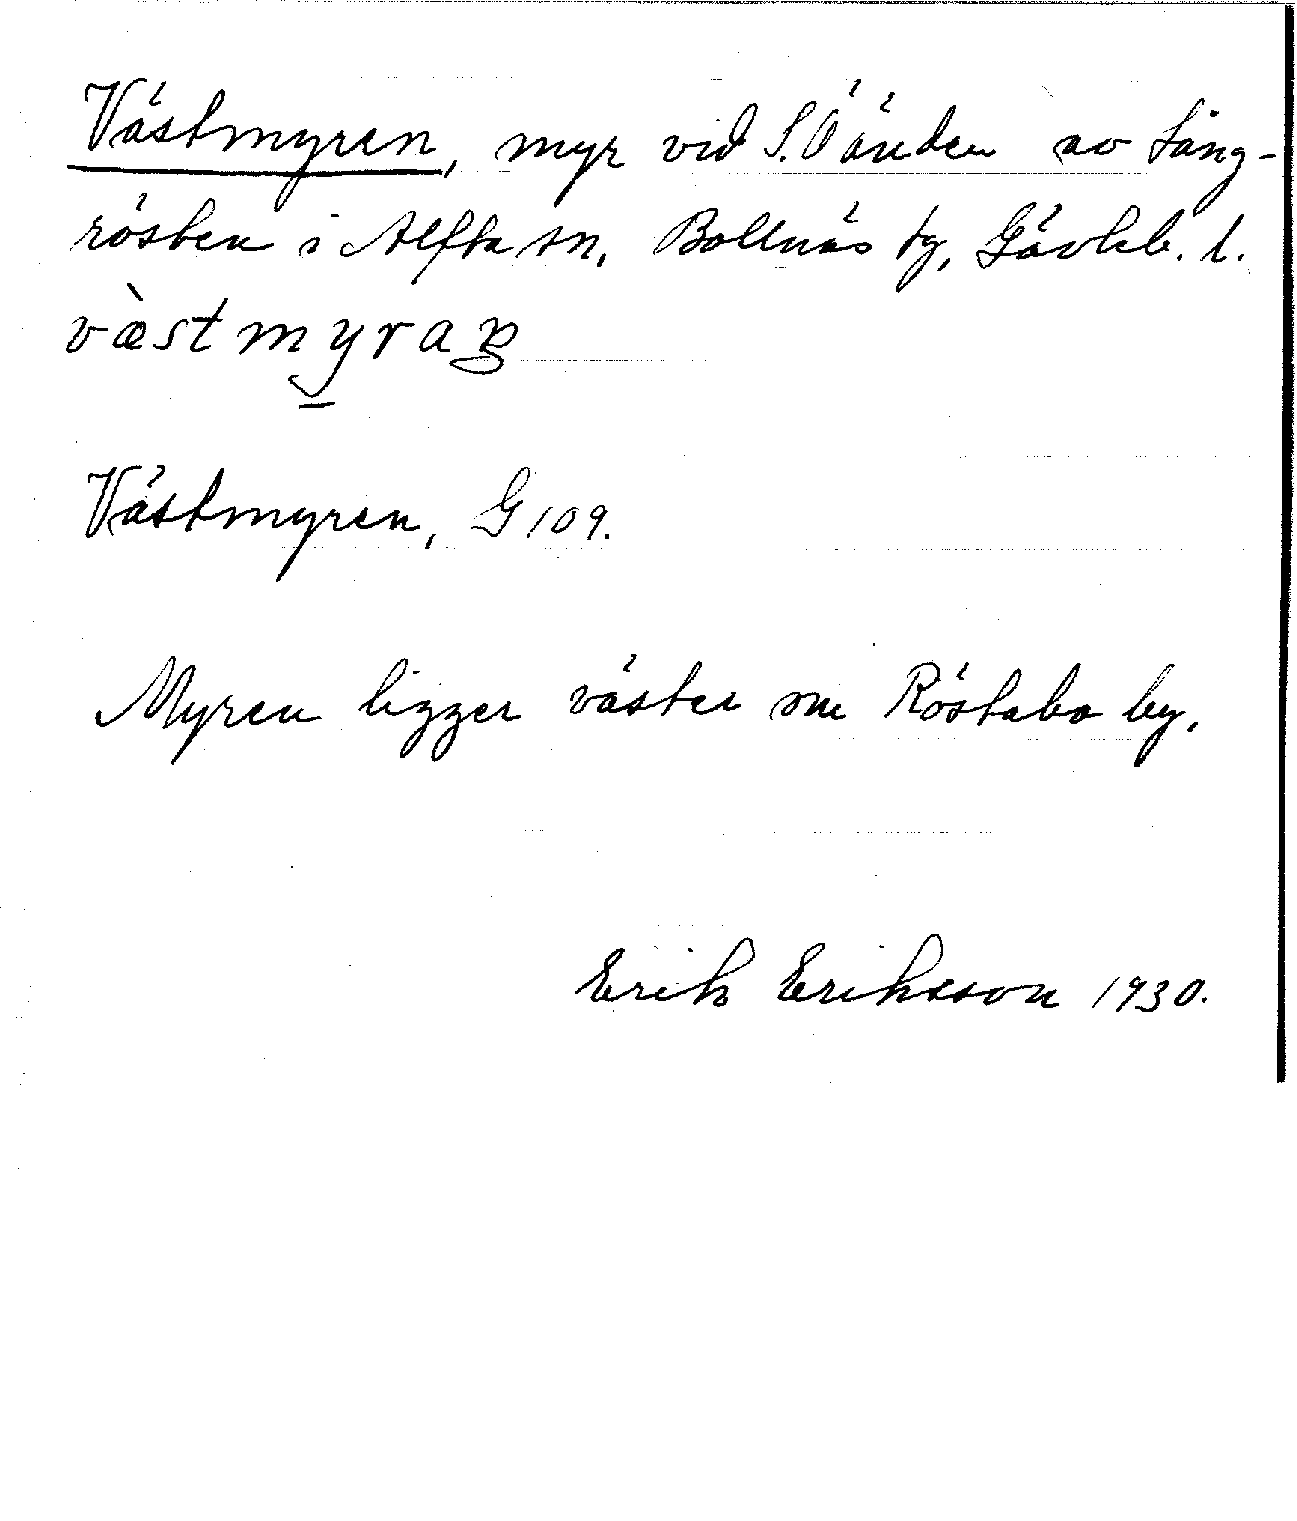 Västmyren, myr vid S.Ö änden av Lång-
rösten i Alfta sn, Bollnäs tg, Gävleb. l.
Västmyren, G 109.
Myren ligger väster om Röstabo by.
Erik Eriksson 1930.